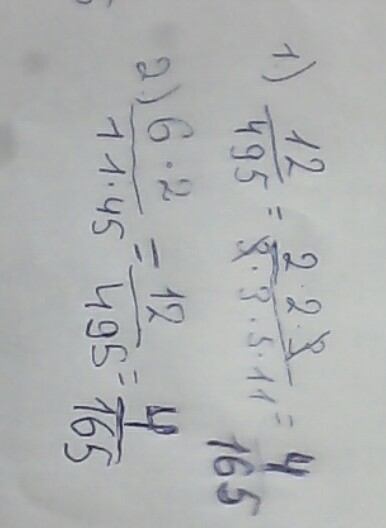 1) 12/495 = 2·2·3/3·3·5·11 = 4/165
2) 6·2/11·45 = 12/495 = 4/165